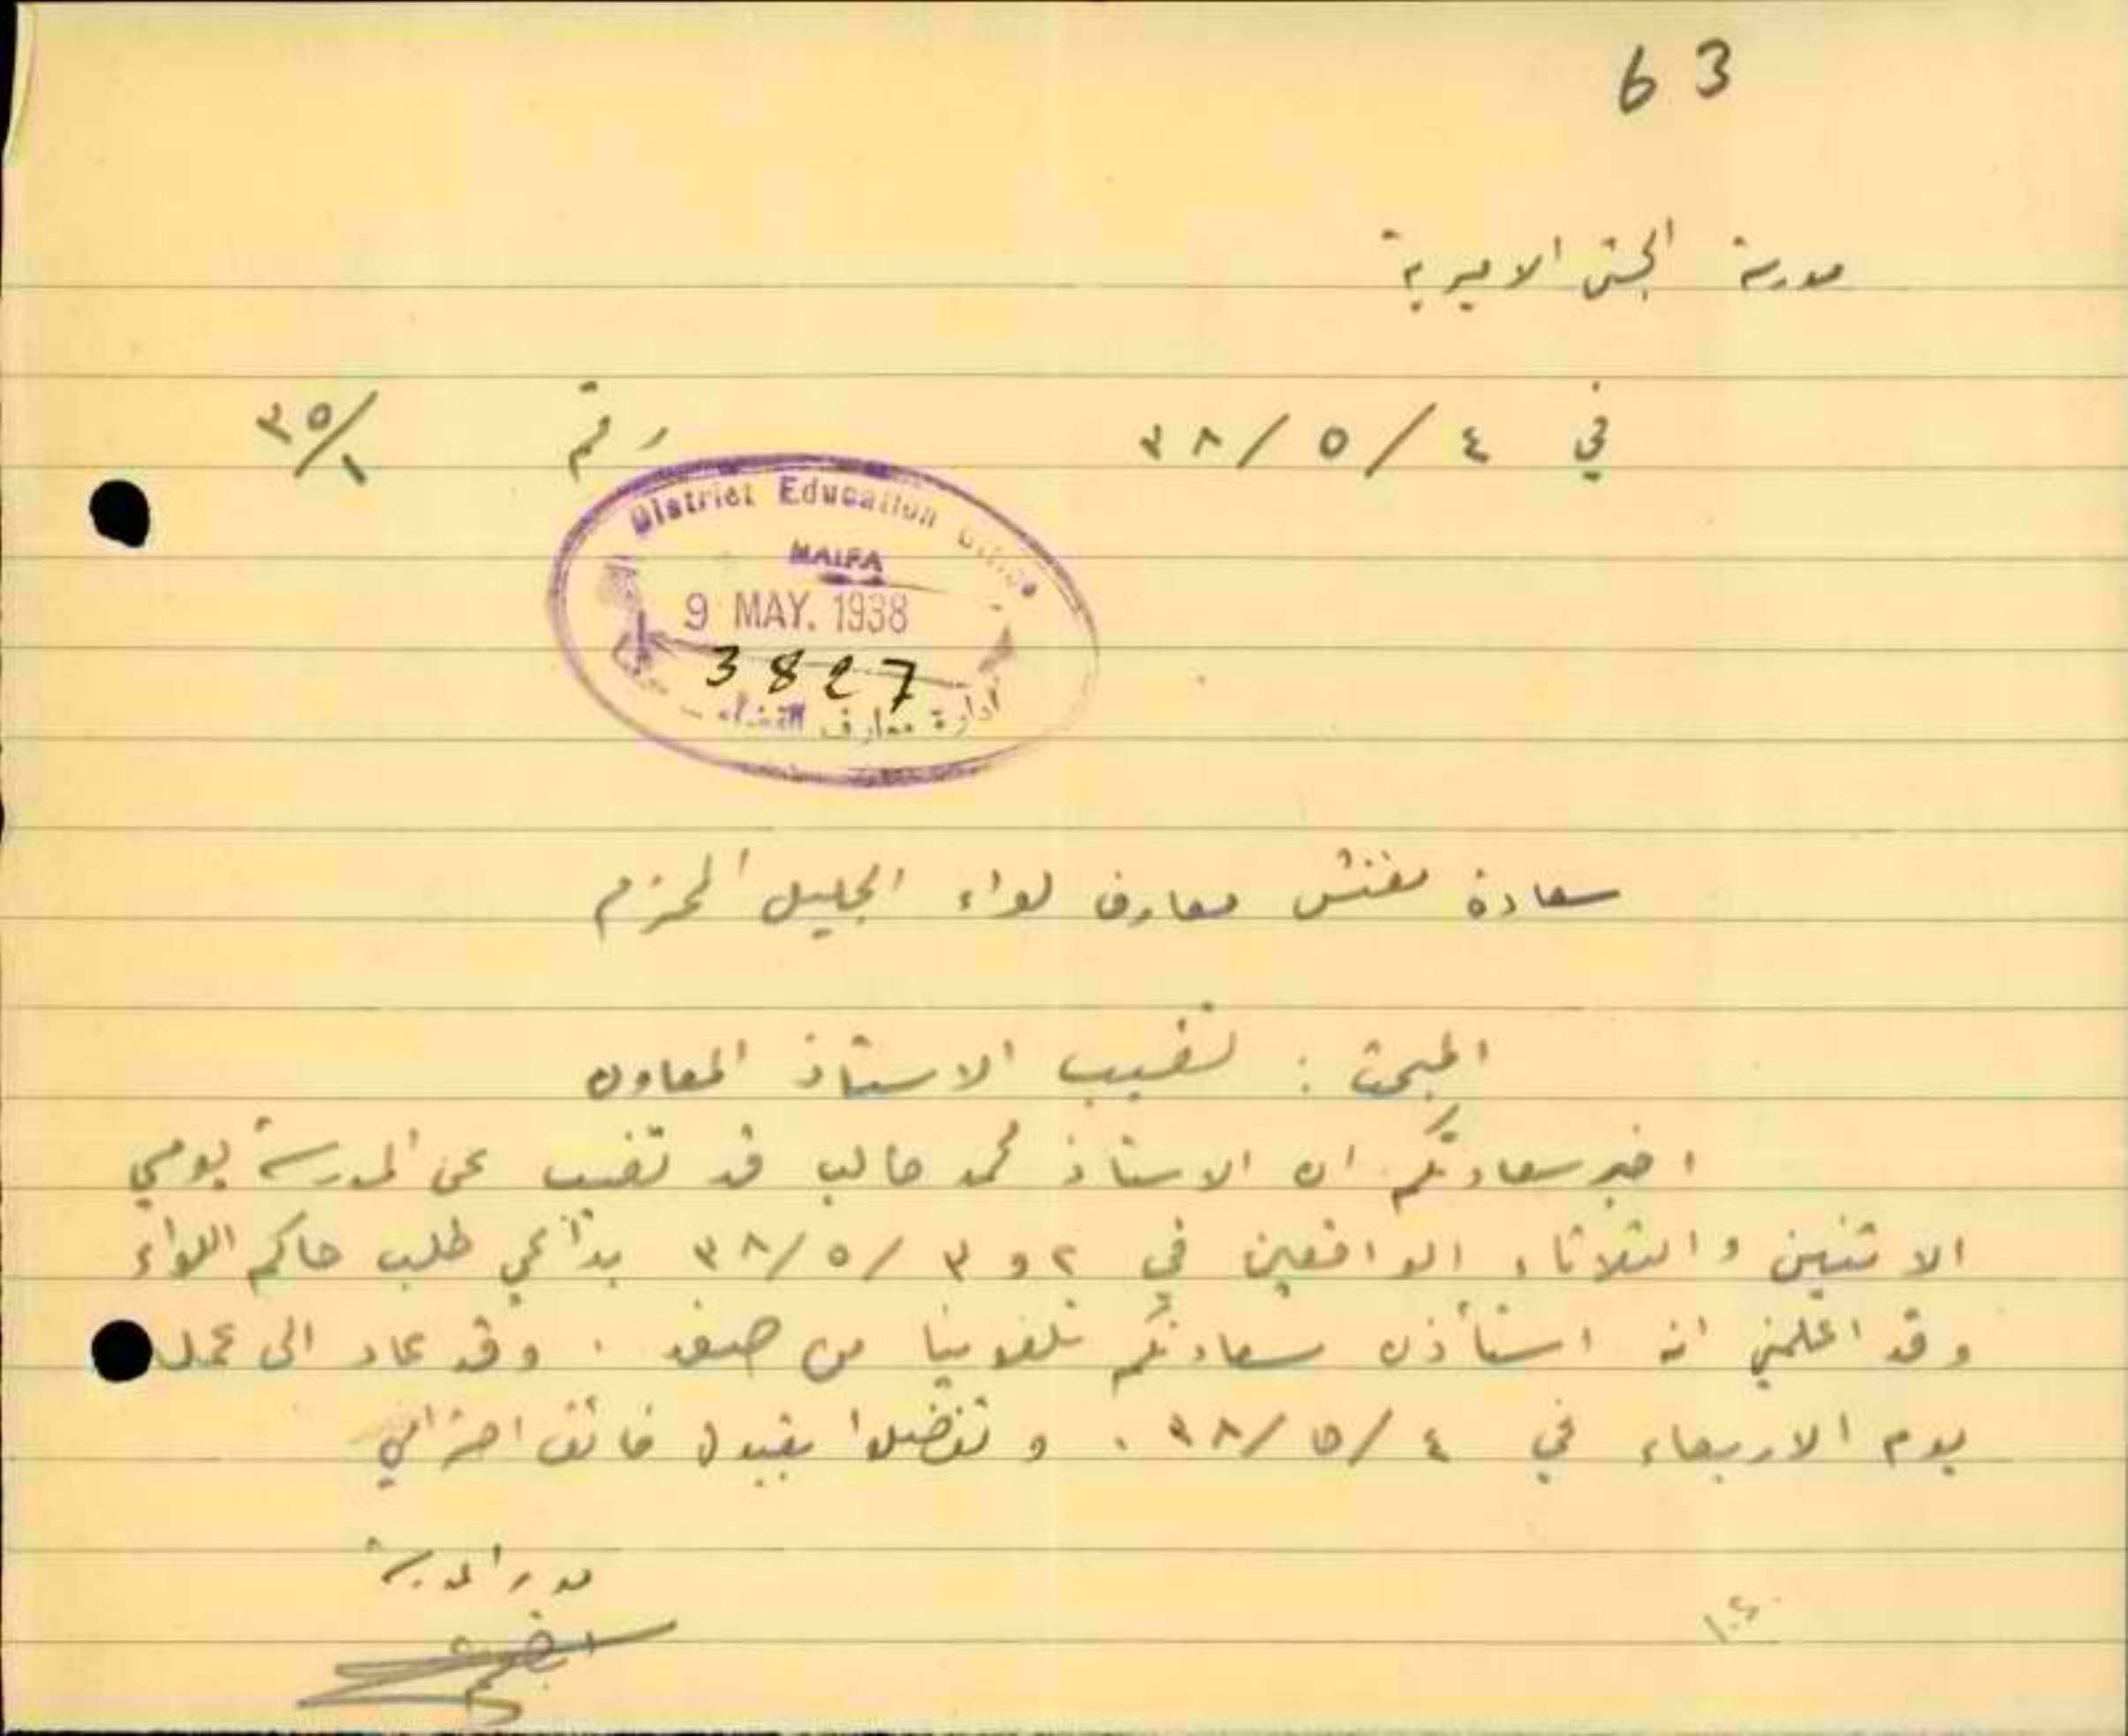 63
مدرسة الجش الاميرية
في ٤ / ٥ / ٣٨ رقم ٣٥/١
District Education Office
HAIFA
9 MAY. 1938
3827
ادارة معارف القضاء
سعادة مفتش معارف لواء الجليل المحترم
المبحث : تغيب الاستاذ المعاون
اخبر سعادتكم ان الاستاذ محمد طالب قد تغيب عن المدرسة يومي
الاثنين والثلاثاء الواقعين في ٢ و ٣ / ٥ / ٣٨ بداعي طلب حاكم اللواء
وقد اعلمني انه استأذن سعادتكم تلفونيا من صفد . وقد عاد الى عمله
يوم الاربعاء في ٤ / ٥ / ٣٨ . وتفضلوا بقبول فائق احترامي
مدير المدرسة